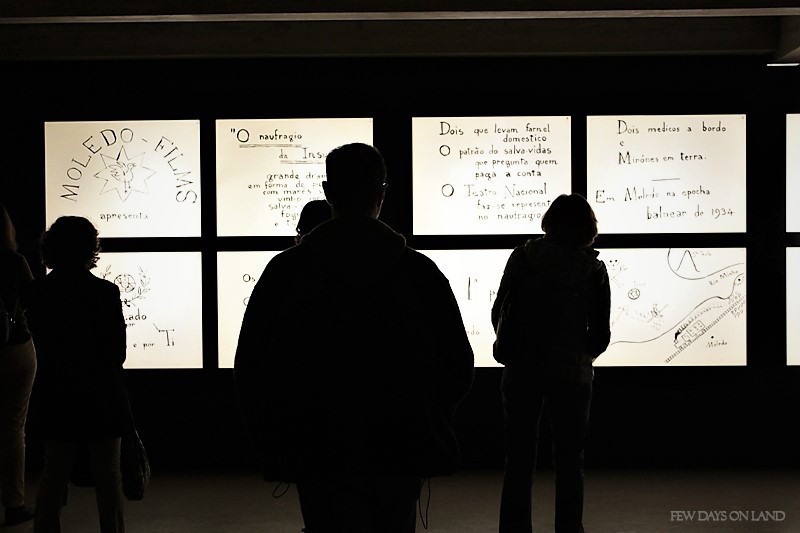 MOLEDO - FILMS
apresenta
"O naufragio
da Ins
grande dra
em forma de
com mares
vinho
salva-
fog
Dois que levam farnel
domestico
O patrão do salva-vidas
que pregunta quem
paga a conta
O Teatro Nacional
faz-se represent
no naufragio
Dois medicos a bordo
e
Mirónes em terra.
Em Moledo na epocha
balnear de 1934
ado
e por Ti
Os
O
1º p
Rio Minho
Moledo
FEW DAYS ON LAND